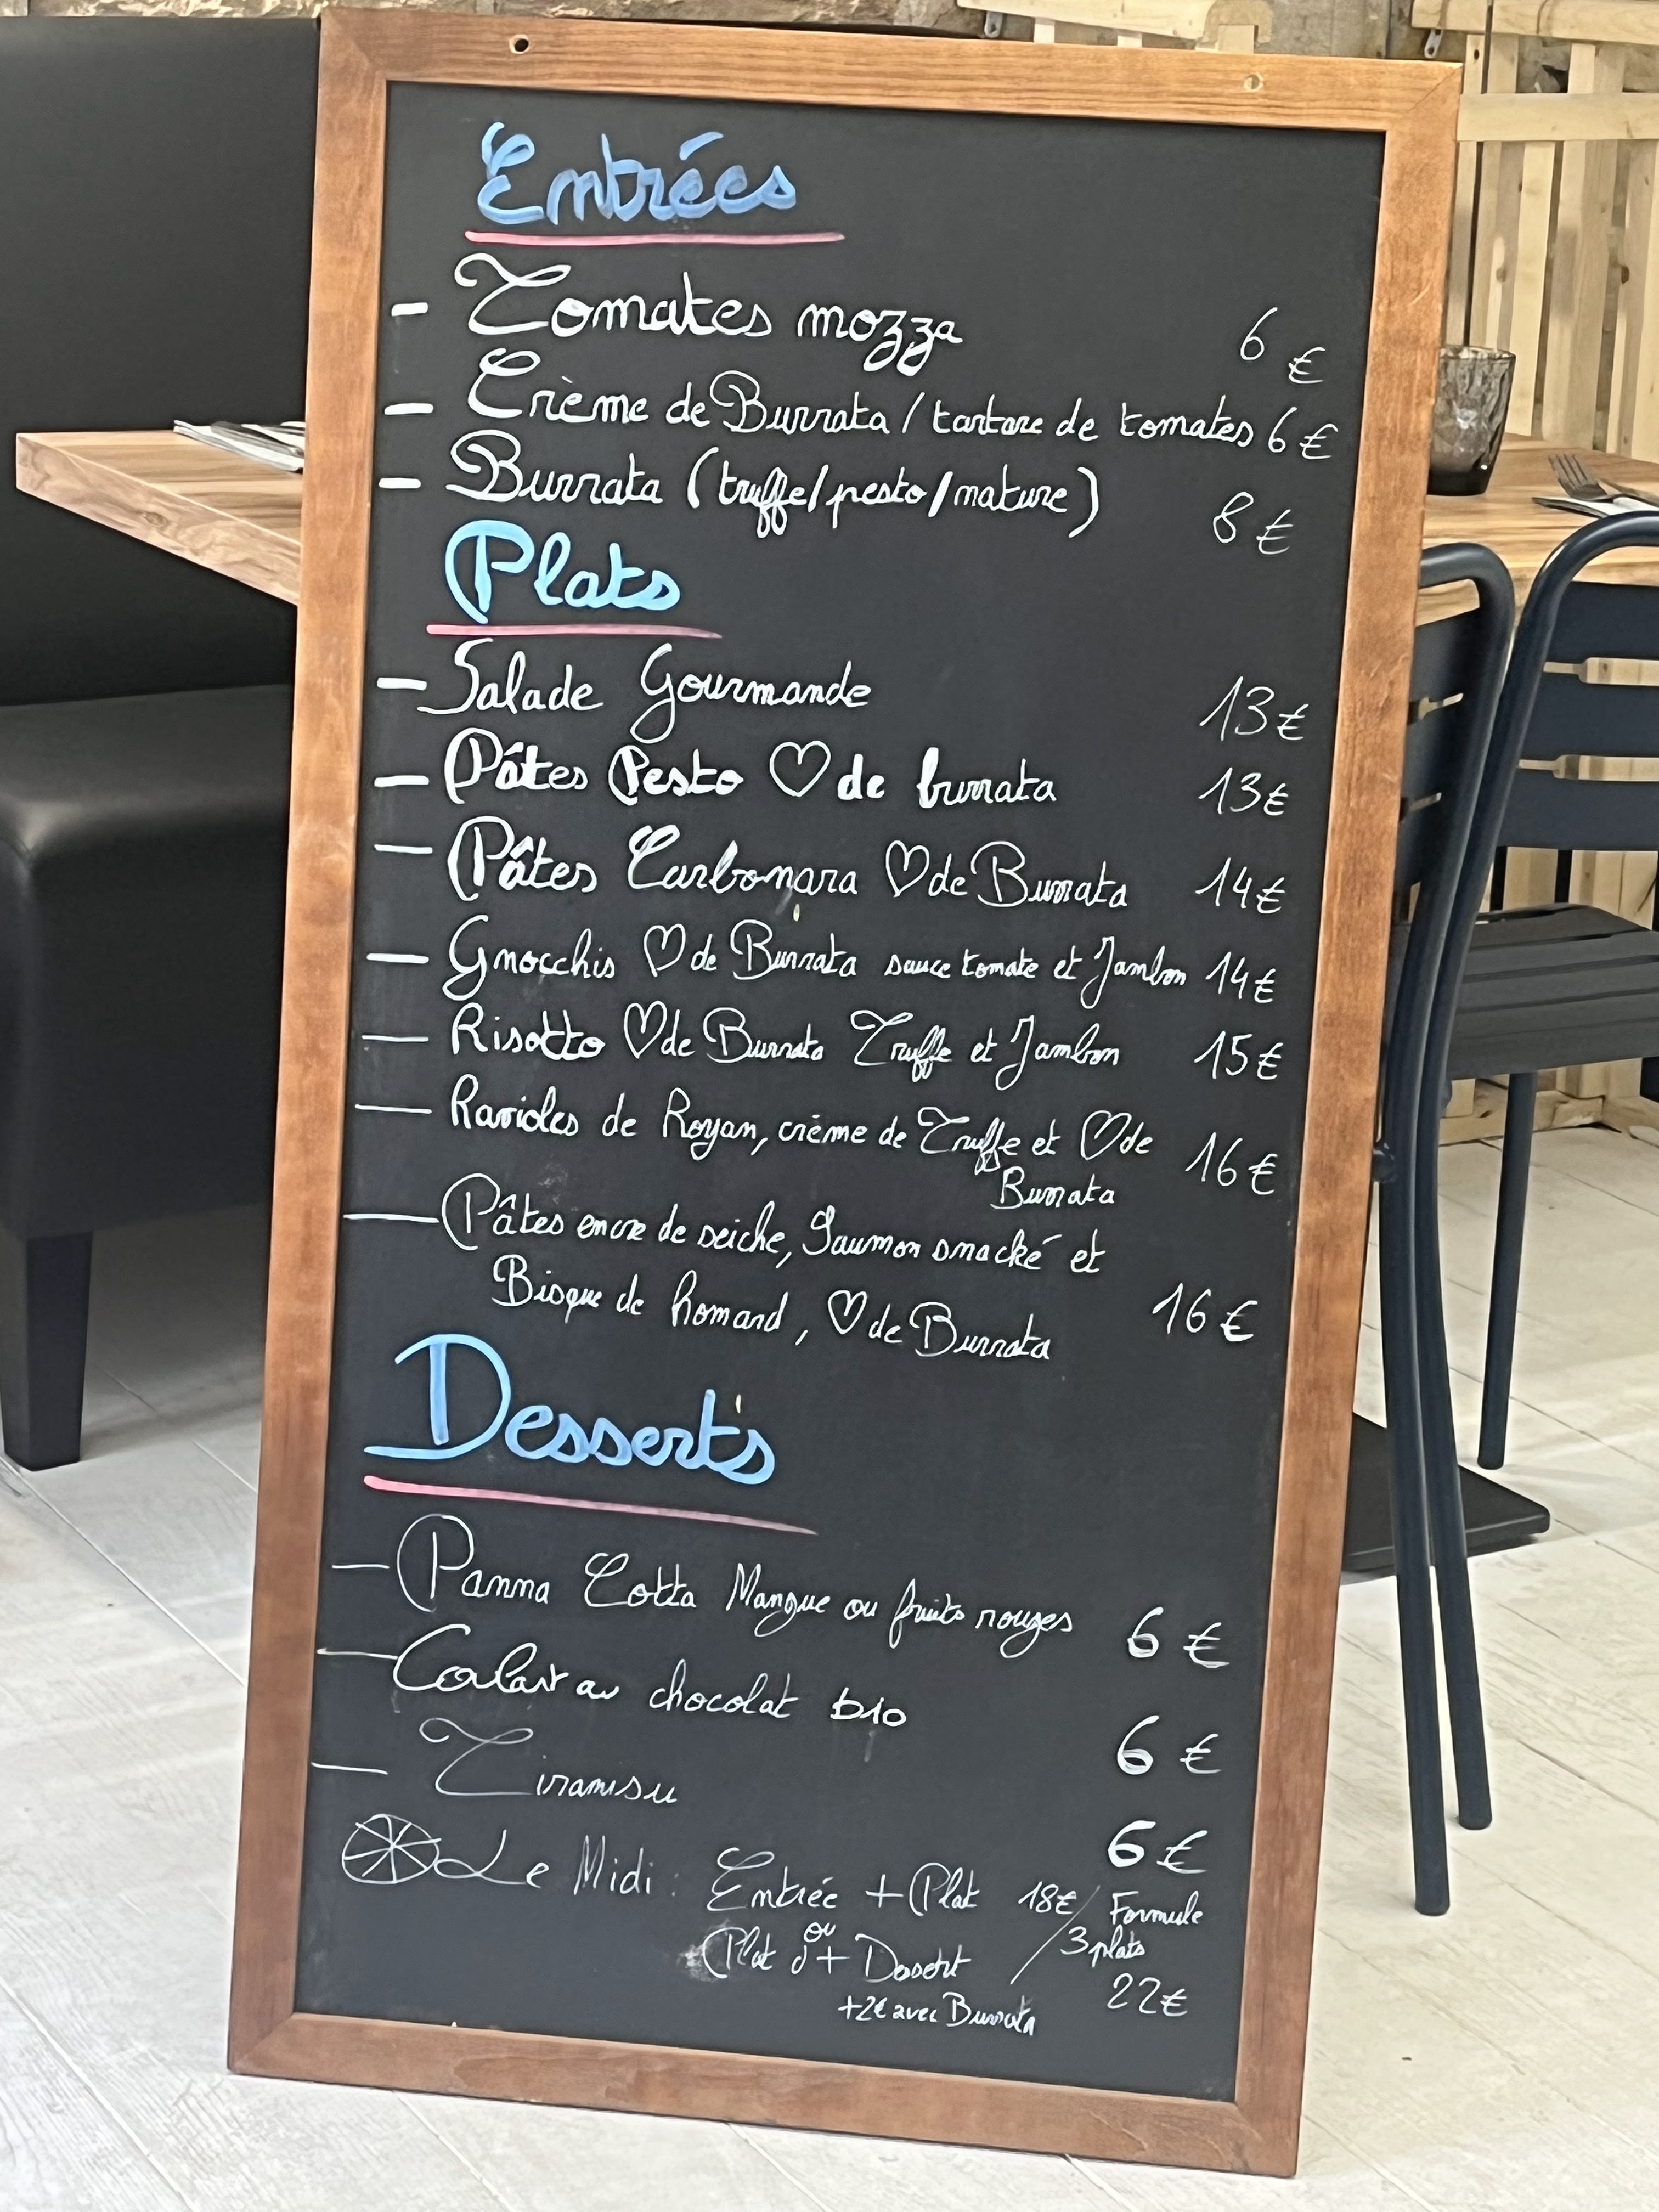 Entrées
- Tomates mozza 6 €
- Crème de Burrata / tartare de tomates 6 €
- Burrata (truffe/pesto/nature) 8 €
Plats
- Salade Gourmande 13 €
- Pâtes Pesto ♡ de burrata 13 €
- Pâtes Carbonara ♡ de Burrata 14 €
- Gnocchis ♡ de Burrata sauce tomate et Jambon 14 €
- Risotto ♡ de Burrata Truffe et Jambon 15 €
- Ravioles de Royan, crème de Truffe et ♡ de 16 €
Burrata
- Pâtes encre de seiche, Saumon snacké et
Bisque de homard, ♡ de Burrata 16 €
Desserts
- Panna Cotta Mangue ou fruits rouges 6 €
- Coulant au chocolat bio 6 €
- Tiramisu 6 €
Le Midi : Entrée + Plat 18€ / Formule
ou 3 plats
Plat + Dessert 22€
+2€ avec Burrata